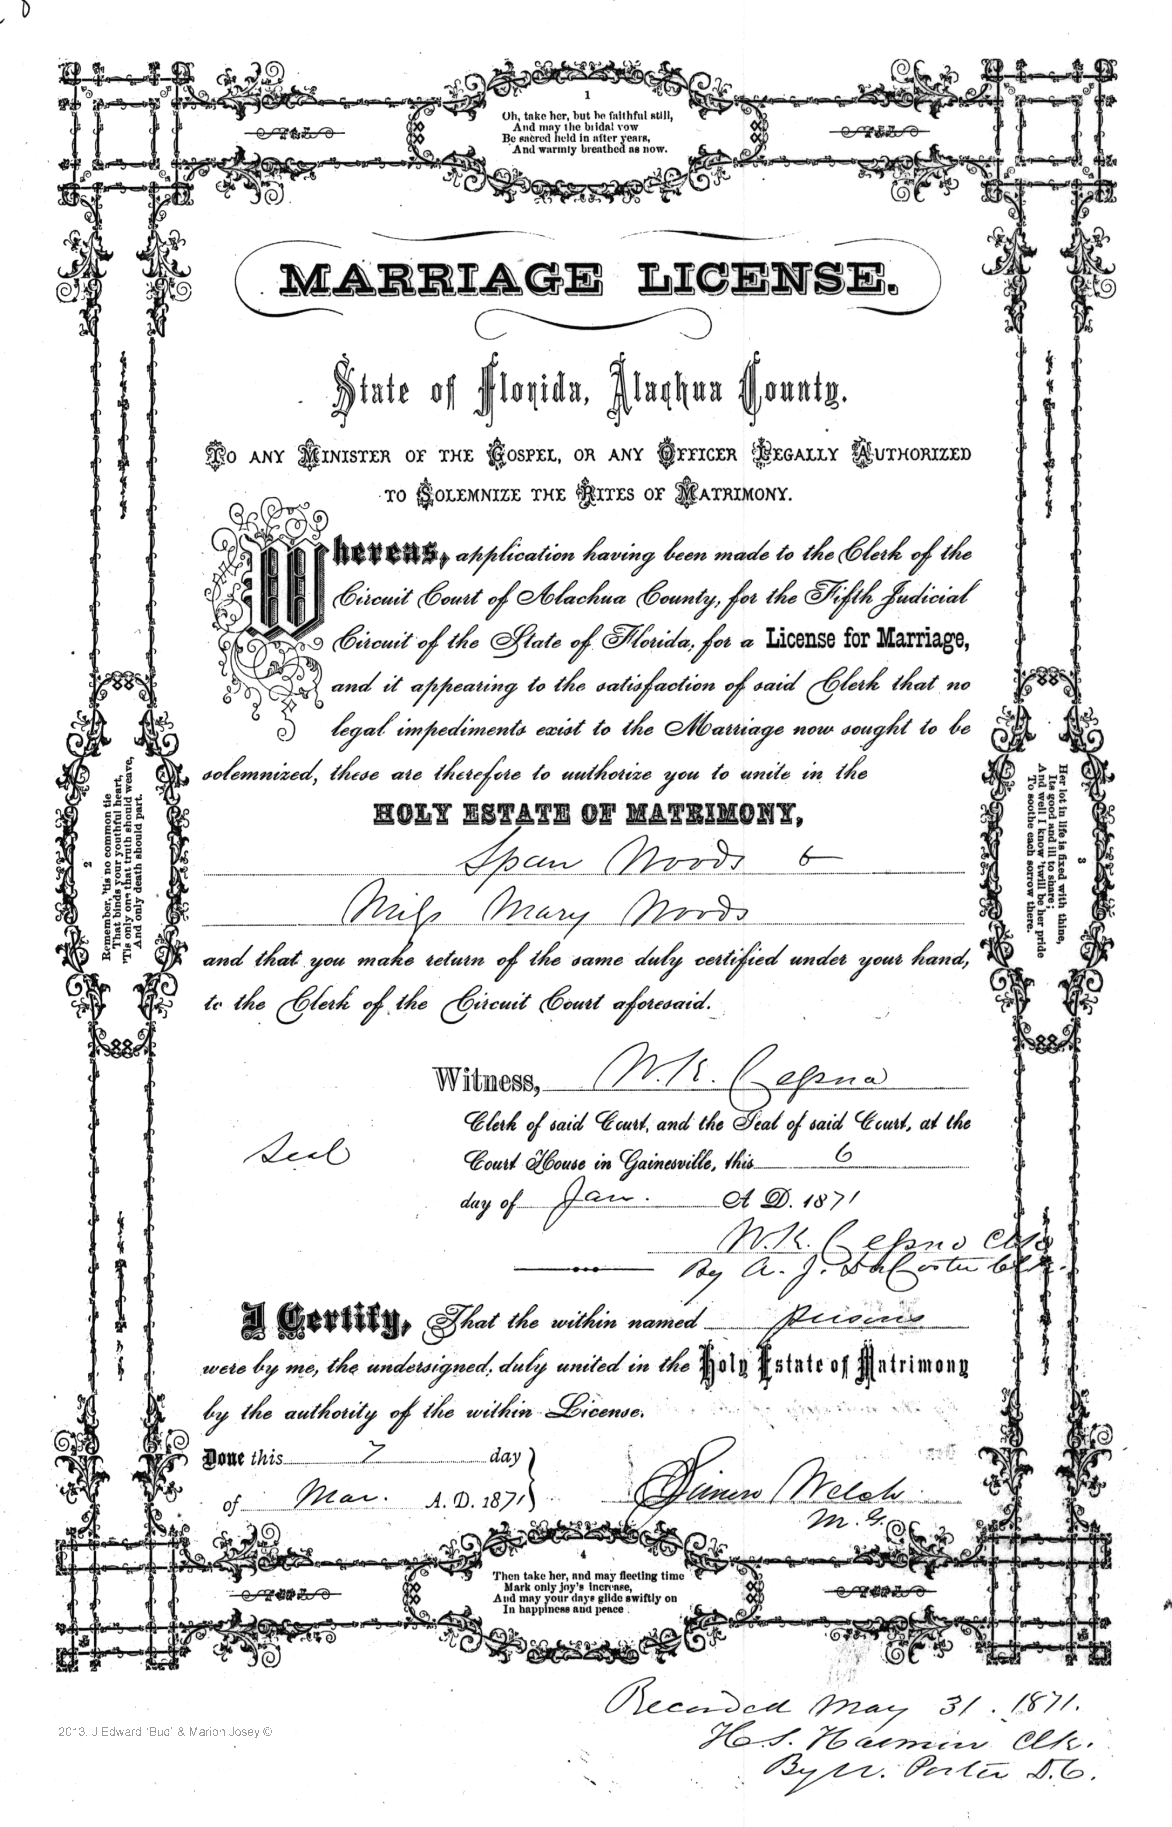 1
Oh, take her, but be faithful still,
And may the bridal vow
Be sacred held in after years,
And warmly breathed as now.
MARRIAGE LICENSE.
State of Florida, Alachua County.
TO ANY MINISTER OF THE GOSPEL, OR ANY OFFICER LEGALLY AUTHORIZED
TO SOLEMNIZE THE RITES OF MATRIMONY.
Whereas, application having been made to the Clerk of the
Circuit Court of Alachua County, for the Fifth Judicial
Circuit of the State of Florida, for a License for Marriage,
and it appearing to the satisfaction of said Clerk that no
legal impediments exist to the Marriage now sought to be
solemnized, these are therefore to authorize you to unite in the
HOLY ESTATE OF MATRIMONY,
Span Woods &
Miss Mary Woods
and that you make return of the same duly certified under your hand,
to the Clerk of the Circuit Court aforesaid.
2
Remember, 'tis no common tie
That binds your youthful heart,
'Tis only one that truth should weave,
And only death should part.
3
Her lot in life is fixed with thine,
Its good and ill to share;
And well I know 'twill be her pride
To soothe each sorrow there.
Witness, W. K. Cessna
Clerk of said Court, and the Seal of said Court, at the
Seal
Court House in Gainesville, this 6
day of Jan. A. D. 1871
W. K. Cessna Clk
By A. J. DaCosta
I Certify, That the within named persons
were by me, the undersigned, duly united in the Holy Estate of Matrimony
by the authority of the within License.
Done this 7 day
of Mar. A. D. 1871
Welch
M. G.
4
Then take her, and may fleeting time
Mark only joy's increase,
And may your days glide swiftly on
In happiness and peace.
Recorded May 31. 1871.
H. S. Harmon Clk.
By W. Porter D.C.
2013. J Edward 'Bud' & Marion Josey ©